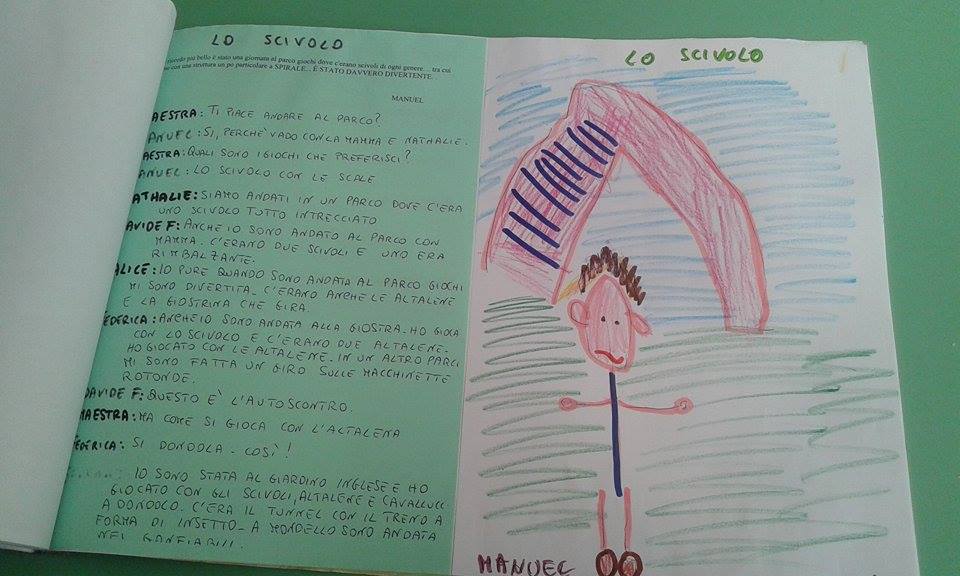 LO SCIVOLO
ricordo più bello è stato una giornata al parco giochi dove c'erano scivoli di ogni genere... tra cui
con una struttura un po particolare a SPIRALE... È STATO DAVVERO DIVERTENTE.
MANUEL
AESTRA: TI PIACE ANDARE AL PARCO?
ANUEL: SI, PERCHE' VADO CON LA MAMMA E NATHALIE.
AESTRA: QUALI SONO I GIOCHI CHE PREFERISCI?
ANUEL: LO SCIVOLO CON LE SCALE
NATHALIE: SIAMO ANDATI IN UN PARCO DOVE C'ERA
UNO SCIVOLO TUTTO INTRECCIATO
DAVIDE F: ANCHE IO SONO ANDATO AL PARCO CON
MAMMA. C'ERANO DUE SCIVOLI E UNO ERA
RIMBALZANTE.
ALICE: IO PURE QUANDO SONO ANDATA AL PARCO GIOCHI
MI SONO DIVERTITA. C'ERANO ANCHE LE ALTALENE
E LA GIOSTRINA CHE GIRA.
FEDERICA: ANCHE IO SONO ANDATA ALLA GIOSTRA. HO GIOCA
CON LO SCIVOLO E C'ERANO DUE ALTALENE.
HO GIOCATO CON LE ALTALENE. IN UN ALTRO PARCO
MI SONO FATTA UN GIRO SULLE MACCHINETTE
ROTONDE.
DAVIDE F: QUESTO È L'AUTOSCONTRO.
MAESTRA: MA COME SI GIOCA CON L'ALTALENA
FEDERICA: SI DONDOLA - COSÌ!
IO SONO STATA AL GIARDINO INGLESE E HO
GIOCATO CON GLI SCIVOLI, ALTALENE E CAVALLUCCI
A DONDOLO. C'ERA IL TUNNEL CON IL TRENO A
FORMA DI INSETTO - A MONDELLO SONO ANDATA
NEI GONFIABILI.
LO SCIVOLO
MANUEL